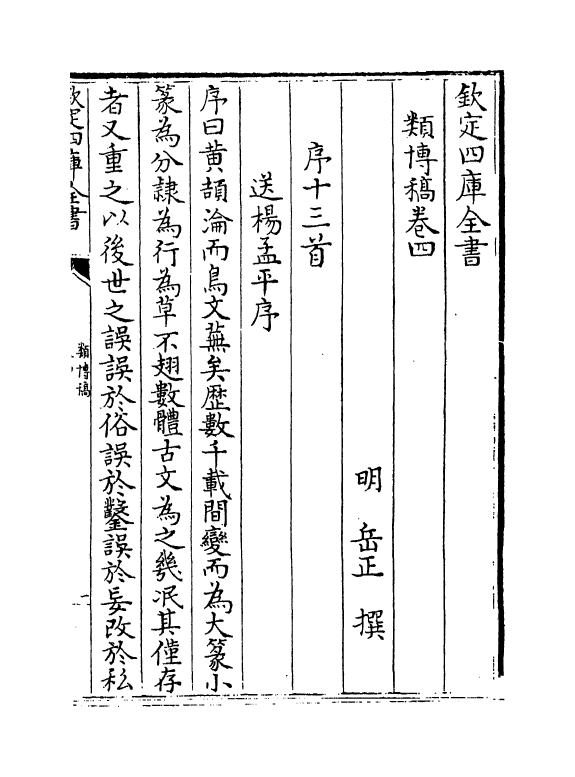 欽定四庫全書
類博稿卷四
明 岳正 撰
序十三首
送楊孟平序
序曰黄頡淪而鳥文蕪矣歴數千載間變而為大篆小
篆為分隸為行為草不翅數體古文為之幾泯其僅存
者又重之以後世之誤誤於俗誤於鑿誤於妄改於私
欽定四庫全書
類博稿
一